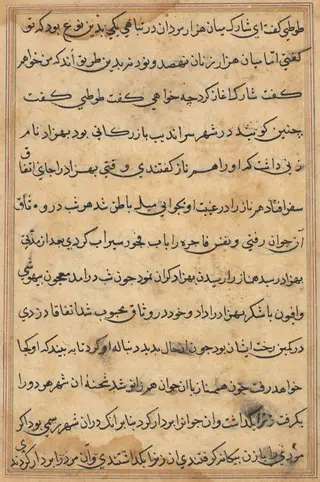 طوطی گفت ای شارک میان هزار مردان در تباهی یکی بدین نوع بود که تو
گفتی اما میان هزار زنان نهصد و نود نه بدین طریق اند که من خواهم
گفت شارک آغاز کرد چه خواهی گفت طوطی گفت
چنین گویند در شهر سراندیب بازرکانی بود بهزاد نام
زنی داشت که او را همناز گفتندی وقتی بهزاد را جای اتفاق
سفر افتاد همناز را رغبت او بجوانی میل باطن شد هر شب در وثاق
آن جوان رفتی و نفس فاجره را باب فجور سیراب کردی بعد از مدتی
بهزاد رسید همناز را رسیدن بهزاد گران نمود چون شب درامد معجون بیهوشی
وافیون با شکر بهزاد را داد و خود در وثاق محبوب شد اتفاقا دزدی
در کمین رخت ایشان بود چون آن حال بدید دنباله او کرد تا به بیند که او کجا
خواهد رفت چون همناز با آن جوان همزانو شد شحنهٔ آن شهر هر دو را
بگرفت زنرا بگذاشت و آن جوانرا بردار کرد بنا بر آنک در آن شهر رسمی بود اگر
مردی را با زن بیگانه گرفتندی آن زنرا بگذاشتندی و آن مرد را بردار کردند